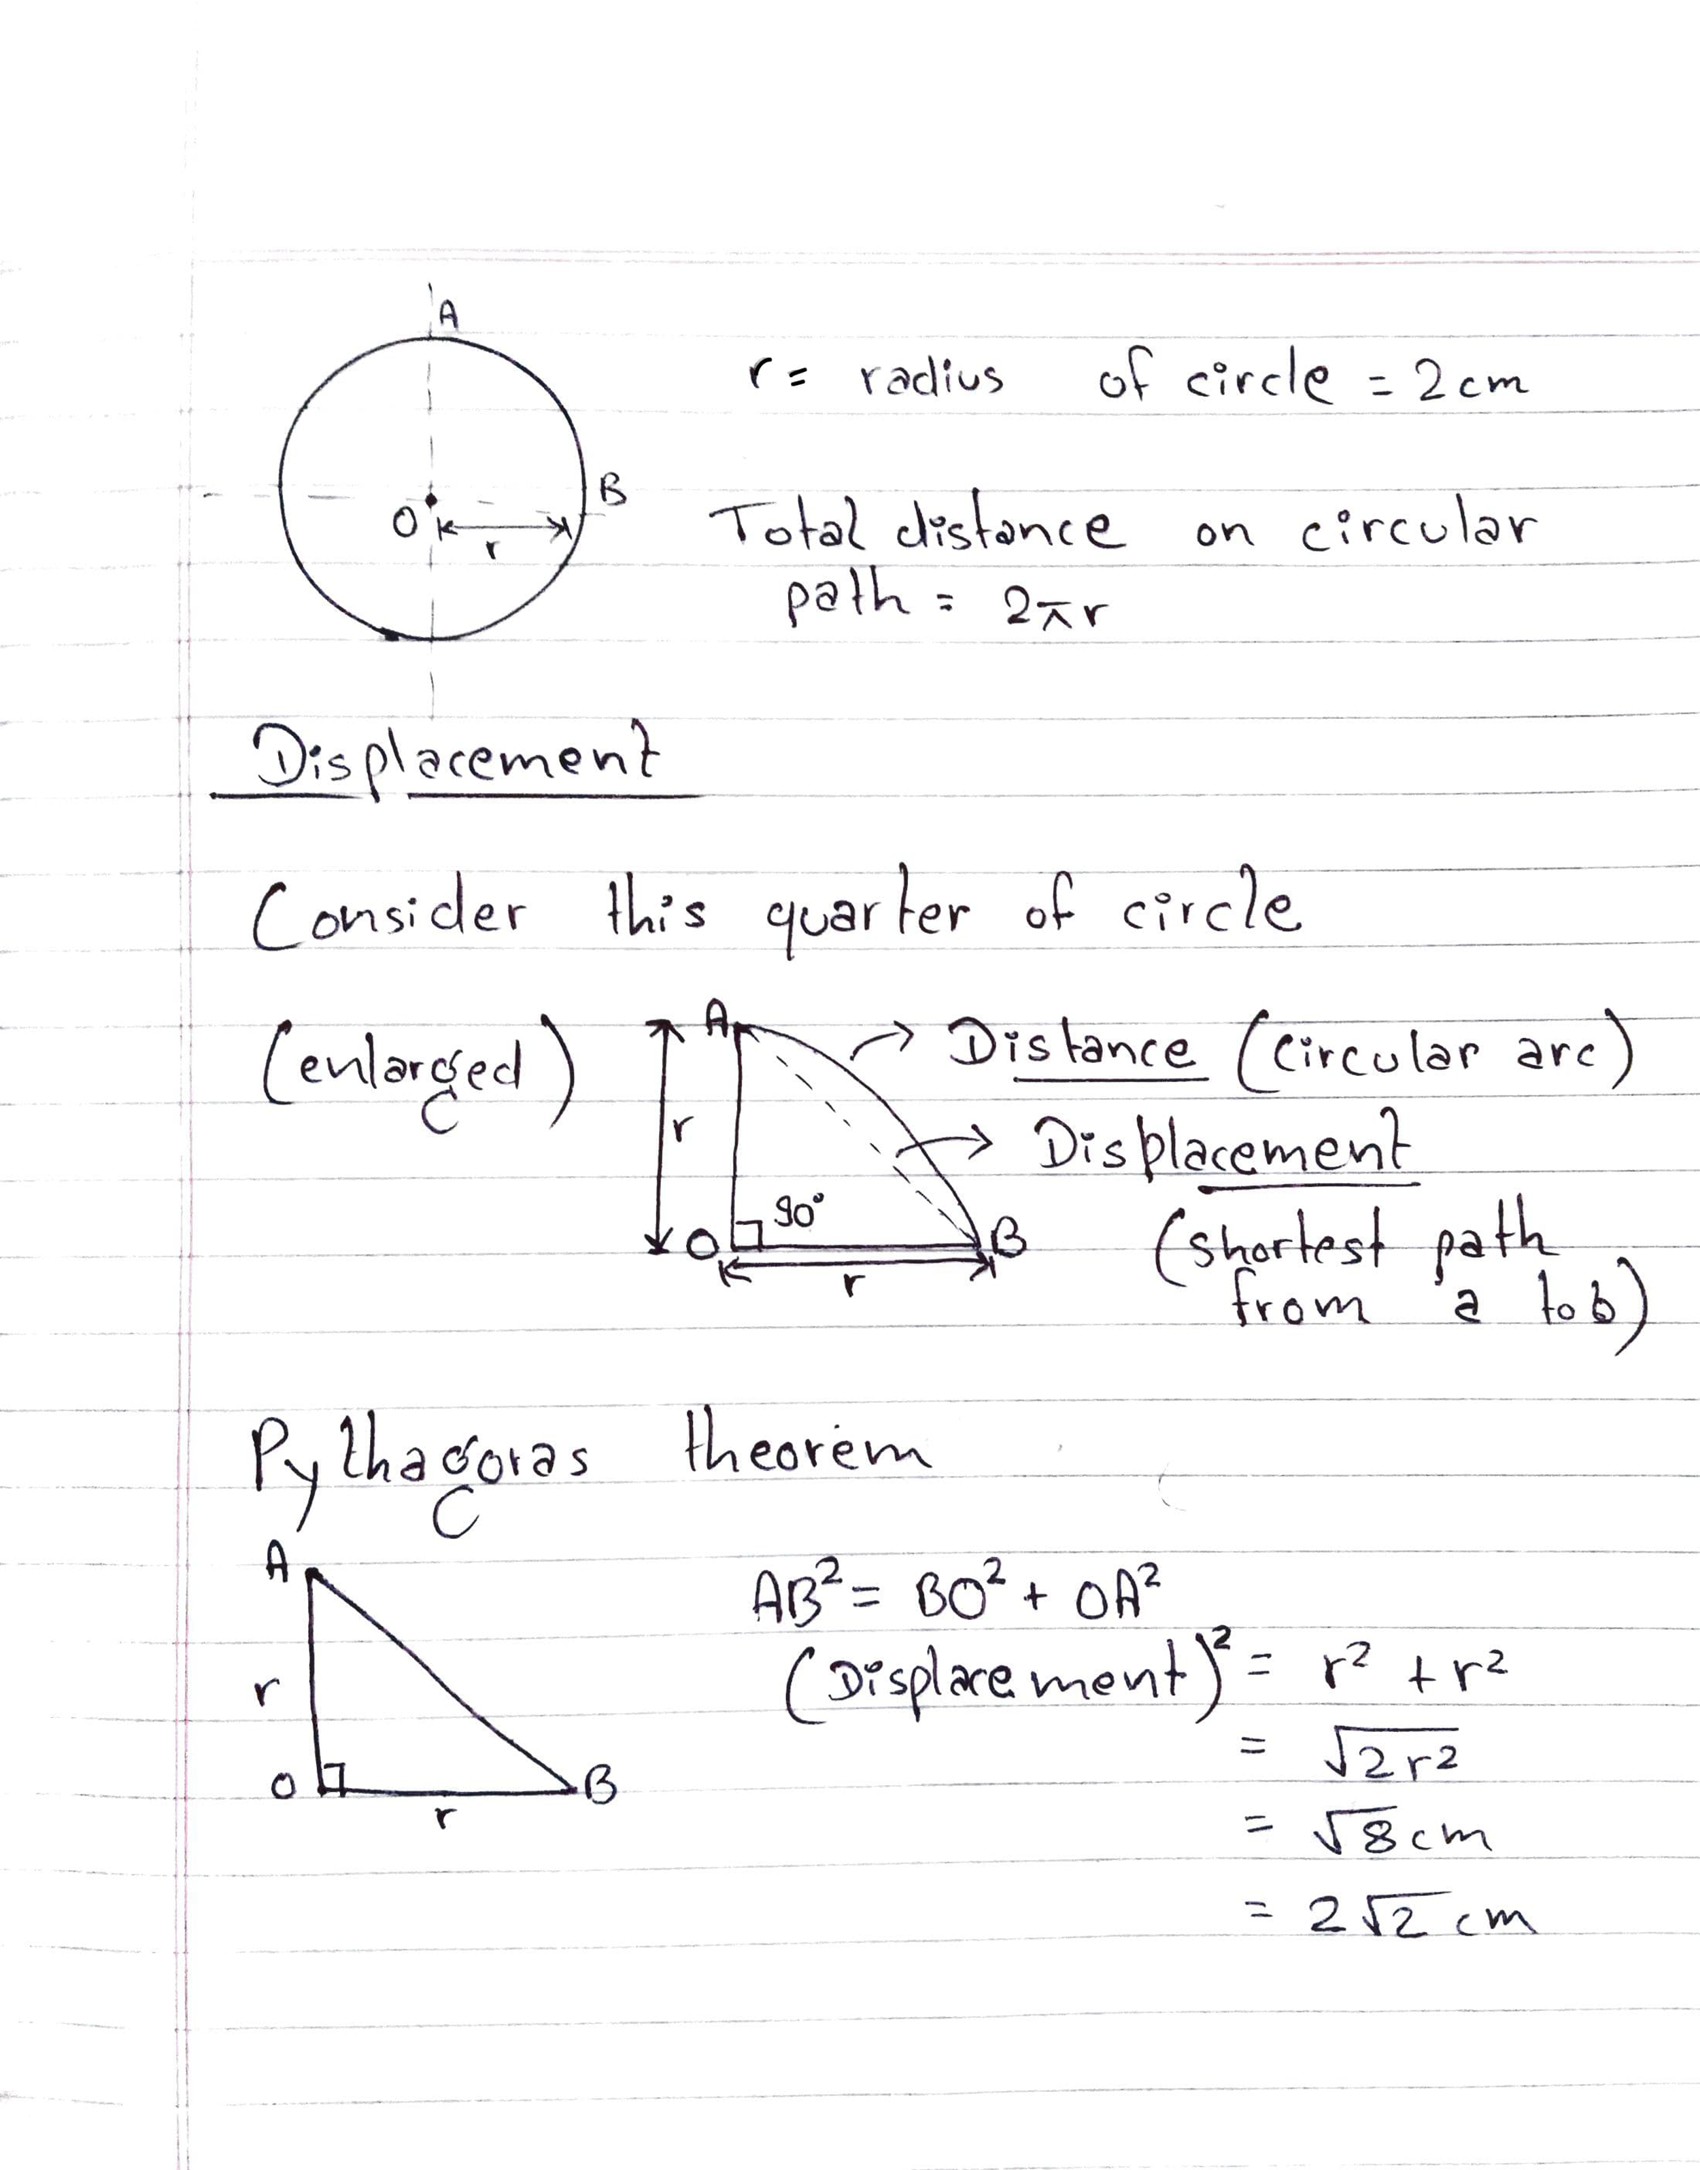 A
r = radius of circle = 2cm
B
O
r
Total distance on circular
path = 2πr
Displacement
Consider this quarter of circle
(enlarged)
A
Distance (circular arc)
r
Displacement
90°
O
B
r
(shortest path
from a to b)
Pythagoras theorem
A
AB² = BO² + OA²
(Displacement)² = r² + r²
r
= √2r²
O
B
r
= √8cm
= 2√2 cm